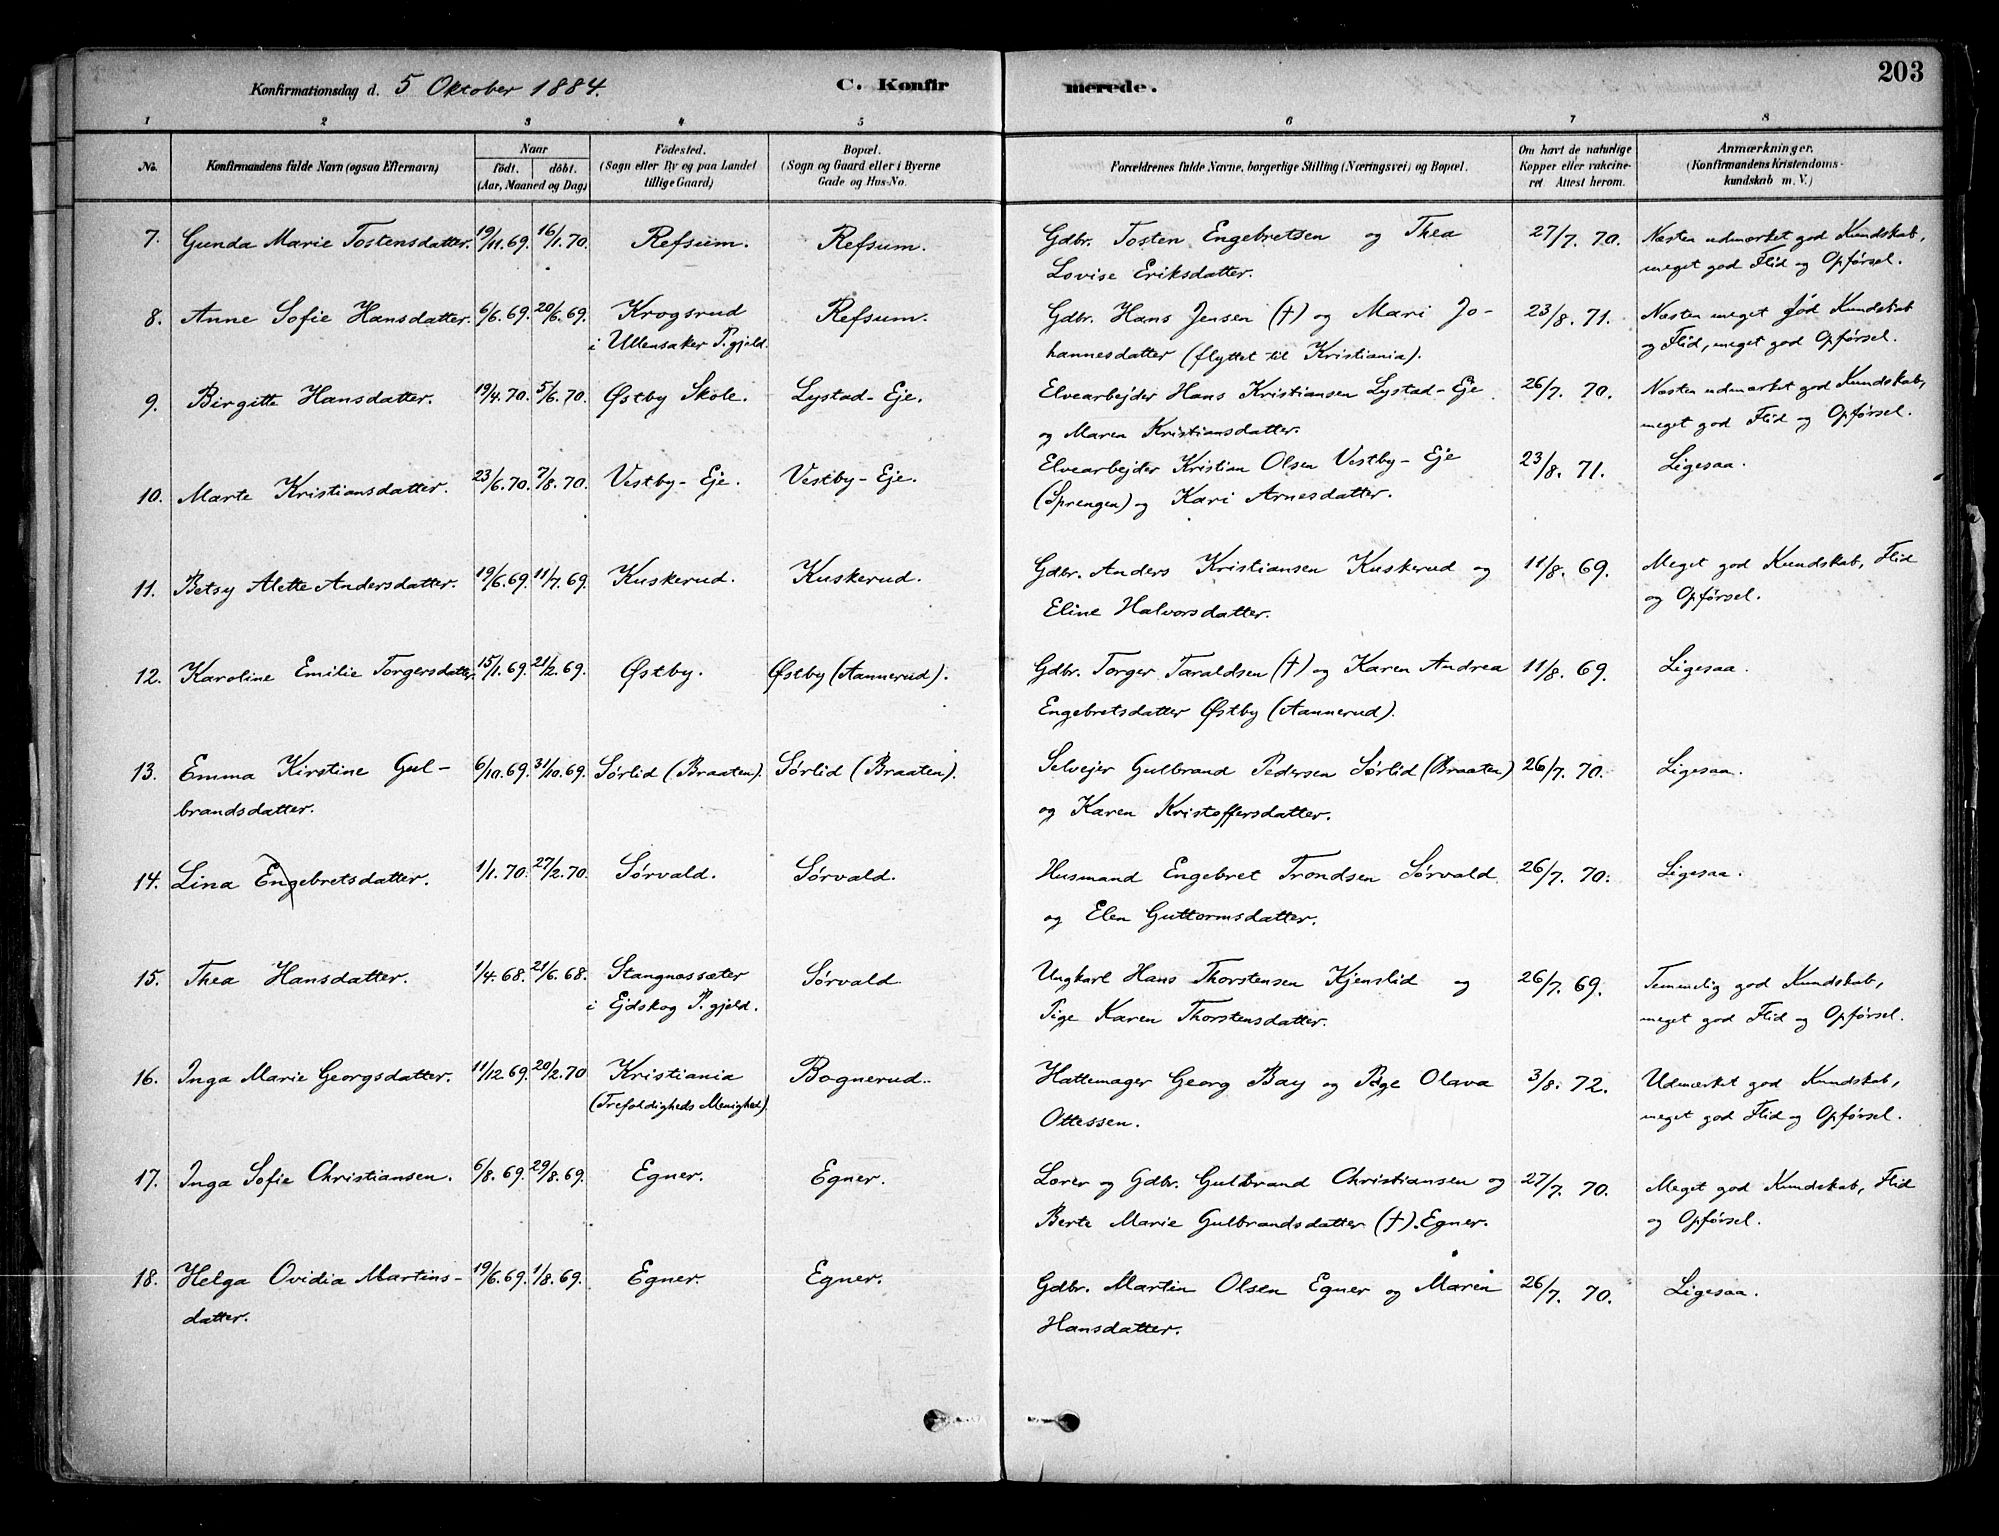 203
Konfirmationsdag d. 5 Oktober 1884. C. Konfir merede.
1 2 3 4 5 6 7 8
No. Konfirmandens fulde Navn (ogsaa Efternavn)
Naar
födt. döbt.
(Aar, Maaned og Dag)
Födested.
(Sogn eller By og paa Landet
tillige Gaard)
Bopæl.
(Sogn og Gaard eller i Byerne
Gade og Hus-No.
Forældrenes fulde Navne, borgerlige Stilling (Næringsvei) og Bopæl.
Om havt de naturlige
Kopper eller vakcine-
ret Attest herom.
Anmærkninger.
(Konfirmandens Kristendoms-
kundskab m. V.)
7. Gunda Marie Tostensdatter. 19/11.69. 16/1.70. Refsum. Refsum. Gdbr. Tosten Engebretsen og Thea 27/7. 70. Næsten udmærket god Kundskab,
Lovise Eriksdatter. meget god Flid og Opførsel.
8. Anne Sofie Hansdatter. 6/6.69. 20/6.69. Krogsrud Refsum. Gdbr. Hans Jensen (†) og Mari Jo- 23/8. 71. Næsten meget god Kundskab
i Ullensaker P.gjeld. hannesdatter (flyttet til Kristiania). og Flid, meget god Opførsel.
9. Birgitte Hansdatter. 19/4.70. 5/6.70. Østby Skole. Lystad-Eje. Elvearbejder Hans Kristiansen Lystad-Eje 26/7. 70. Næsten udmærket god Kundskab,
og Maren Kristiansdatter. meget god Flid og Opførsel.
10. Marte Kristiansdatter. 23/6.70. 7/8.70. Vestby-Eje. Vestby-Eje. Elvearbejder Kristian Olsen Vestby-Eje 23/8. 71. Ligesaa.
(Sprengen) og Kari Arnesdatter.
11. Betsy Alette Andersdatter. 19/6.69. 11/7.69. Kuskerud. Kuskerud. Gdbr. Anders Kristiansen Kuskerud og 11/8. 69. Meget god Kundskab, Flid
Eline Halvorsdatter. og Opførsel.
12. Karoline Emilie Torgersdatter. 15/1.69. 21/2.69. Østby. Østby (Aannerud). Gdbr. Torger Taraldsen (†) og Karen Andrea 11/8. 69. Ligesaa.
Engebretsdatter Østby (Aannerud).
13. Emma Kirstine Gul- 6/10.69. 31/10.69. Sørlid (Braaten). Sørlid (Braaten). Selvejer Gulbrand Pedersen Sørlid (Braaten) 26/7. 70. Ligesaa.
brandsdatter. og Karen Kristoffersdatter.
14. Lina Engebretsdatter. 1/1.70. 27/2.70. Sørvald. Sørvald. Husmand Engebret Trondsen Sørvald 26/7. 70. Ligesaa.
og Elen Guttormsdatter.
15. Thea Hansdatter. 1/4.68. 21/6.68. Stangnæssæter Sørvald. Ungkarl Hans Thorstensen Kjenslid og 26/7. 69. Temmelig god Kundskab,
i Ejdskog P.gjeld. Pige Karen Thorstensdatter. meget god Flid og Opførsel.
16. Inga Marie Georgsdatter. 11/12.69. 20/2.70 Kristiania Bognerud. Hattemager Georg Bay og Pige Olava 3/8. 72. Udmærket god Kundskab,
(Trefoldigheds Menighed). Ottessen. meget god Flid og Opførsel.
17. Inga Sofie Christiansen. 6/8.69. 29/8.69. Egner. Egner. Lærer og Gdbr. Gulbrand Christiansen og 27/7. 70. Meget god Kundskab, Flid
Berte Marie Gulbrandsdatter (†). Egner. og Opførsel.
18. Helga Ovidia Martins- 19/6.69. 1/8.69. Egner. Egner. Gdbr. Martin Olsen Egner og Maren 26/7. 70. Ligesaa.
datter. Hansdatter.